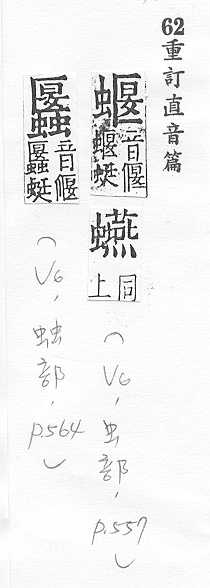 62重訂直音篇
蝘音偃蝘蜓
同上
(V6,虫部,p.557)
音偃
蜓
(V6,䖵部,p.564)